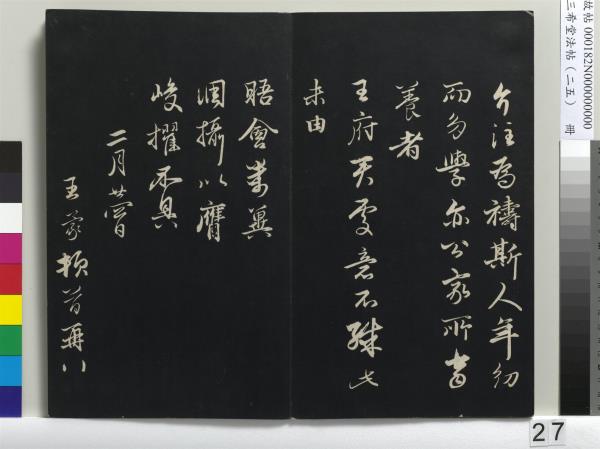 故帖 000182N000000000
三希堂法帖（二五） 冊
為禱斯人年幼
而多學亦公家所當
養者
王府意不殊
未由
晤會萬冀
調攝以膺
峻擢不具
二月日
王蒙頓首再拜
27